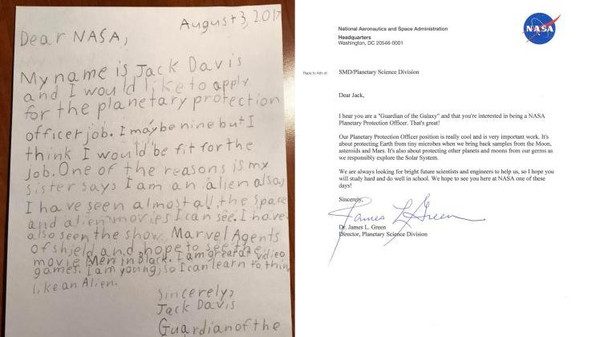 August 3, 2017
Dear NASA,
My name is Jack Davis
and I would like to apply
for the planetary protection
officer job. I may be nine but I
think I would be fit for the
job. One of the reasons is my
sister says I am an alien also
I have seen almost all the space
and alien movies I can see. I have
also seen the show Marvel Agents
of Shield and hope to see the
movie Men in Black. I am great at video
games. I am young, so I can learn to think
like an Alien.
Sincerely,
Jack Davis
Guardian of the
National Aeronautics and Space Administration
Headquarters
Washington, DC 20546-0001
NASA
Reply to Attn of:
SMD/Planetary Science Division
Dear Jack,
I hear you are a "Guardian of the Galaxy" and that you're interested in being a NASA
Planetary Protection Officer. That's great!
Our Planetary Protection Officer position is really cool and is very important work. It's
about protecting Earth from tiny microbes when we bring back samples from the Moon,
asteroids and Mars. It's also about protecting other planets and moons from our germs as
we responsibly explore the Solar System.
We are always looking for bright future scientists and engineers to help us, so I hope you
will study hard and do well in school. We hope to see you here at NASA one of these
days!
Sincerely,
James L Green
Dr. James L. Green
Director, Planetary Science Division